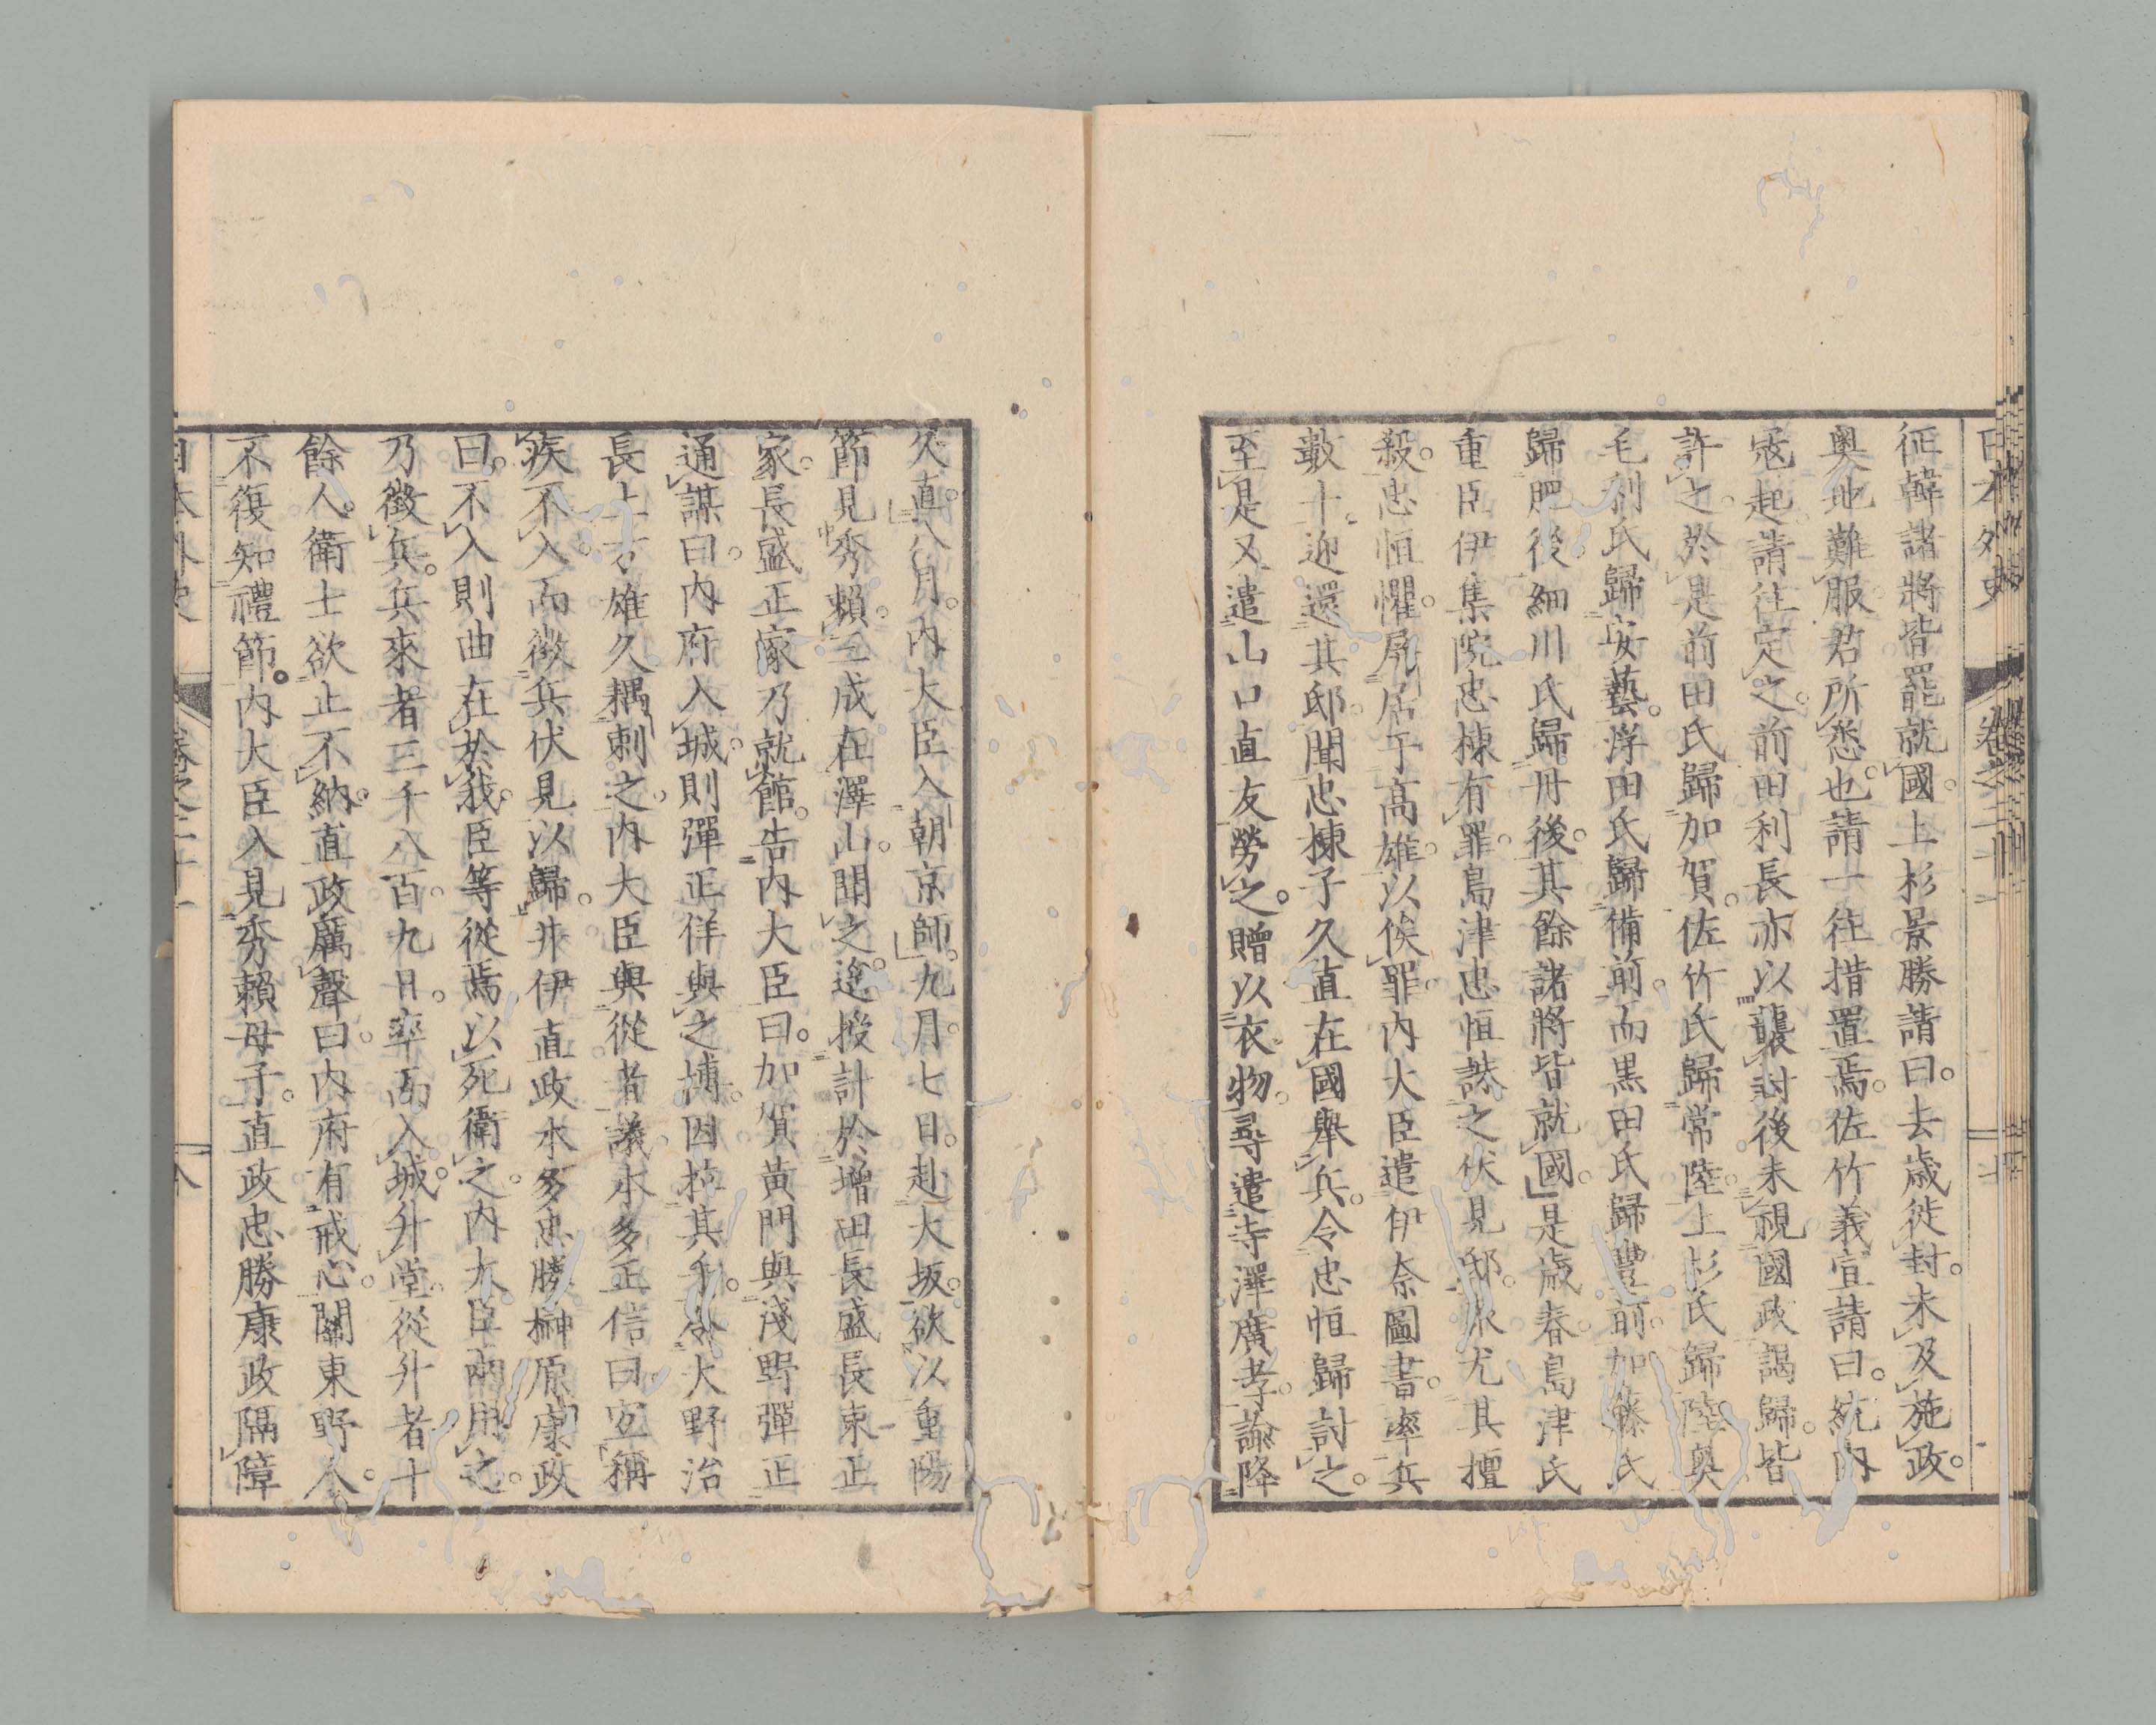 征韓諸將皆罷就國。上杉景勝請曰。去歲徙封。未及施政。
奧地難服。君所悉也。請一往措置焉。佐竹義宣請曰。統內
寇起。請往定之。前田利長亦以襲封後未視國政謁歸。皆
許之。於是前田氏歸加賀。佐竹氏歸常陸。上杉氏歸陸奧
毛利氏歸安藝。浮田氏歸備前。而黑田氏歸豐前。加藤氏
歸肥後。細川氏歸丹後。其餘諸將皆就國。」是歲春。島津氏
重臣伊集院忠棟有罪。島津忠恒誅之伏見邸。眾尤其擅
殺。忠恒懼。屏居于高雄。以俟罪。內大臣遣伊奈圖書。率兵
數十。迎還其邸。聞忠棟子久直在國舉兵。令忠恒歸討之。
至是又遣山口直友勞之。贈以衣物。尋遣寺澤廣孝。諭降
久直。八月。內大臣入朝京師。」九月七日。赴大坂。欲以重陽
節見秀賴。三成在澤山。聞之。迩授計於增田長盛長束正
家。長盛正家乃就館。告內大臣曰。加賀黃門與淺野彈正
通謀曰。內府入城。則彈正佯與之摶。因拉其手。令大野治
長土方雄久耦刺之。內大臣與從者議。本多正信曰。宜稱
疾不入。而徵兵伏見以歸。井伊直政本多忠勝榊原康政
曰。不入則曲在於我。臣等從焉。以死衛之。內大臣兩用之。
乃徵兵。兵來者三千八百。九日。率而入城。升堂。從升者十
餘人。衛士欲止不納。直政厲聲曰。內府有戒心。關東野人。
不復知禮節。內大臣入見秀賴母子。直政忠勝康政隔障
日本外史